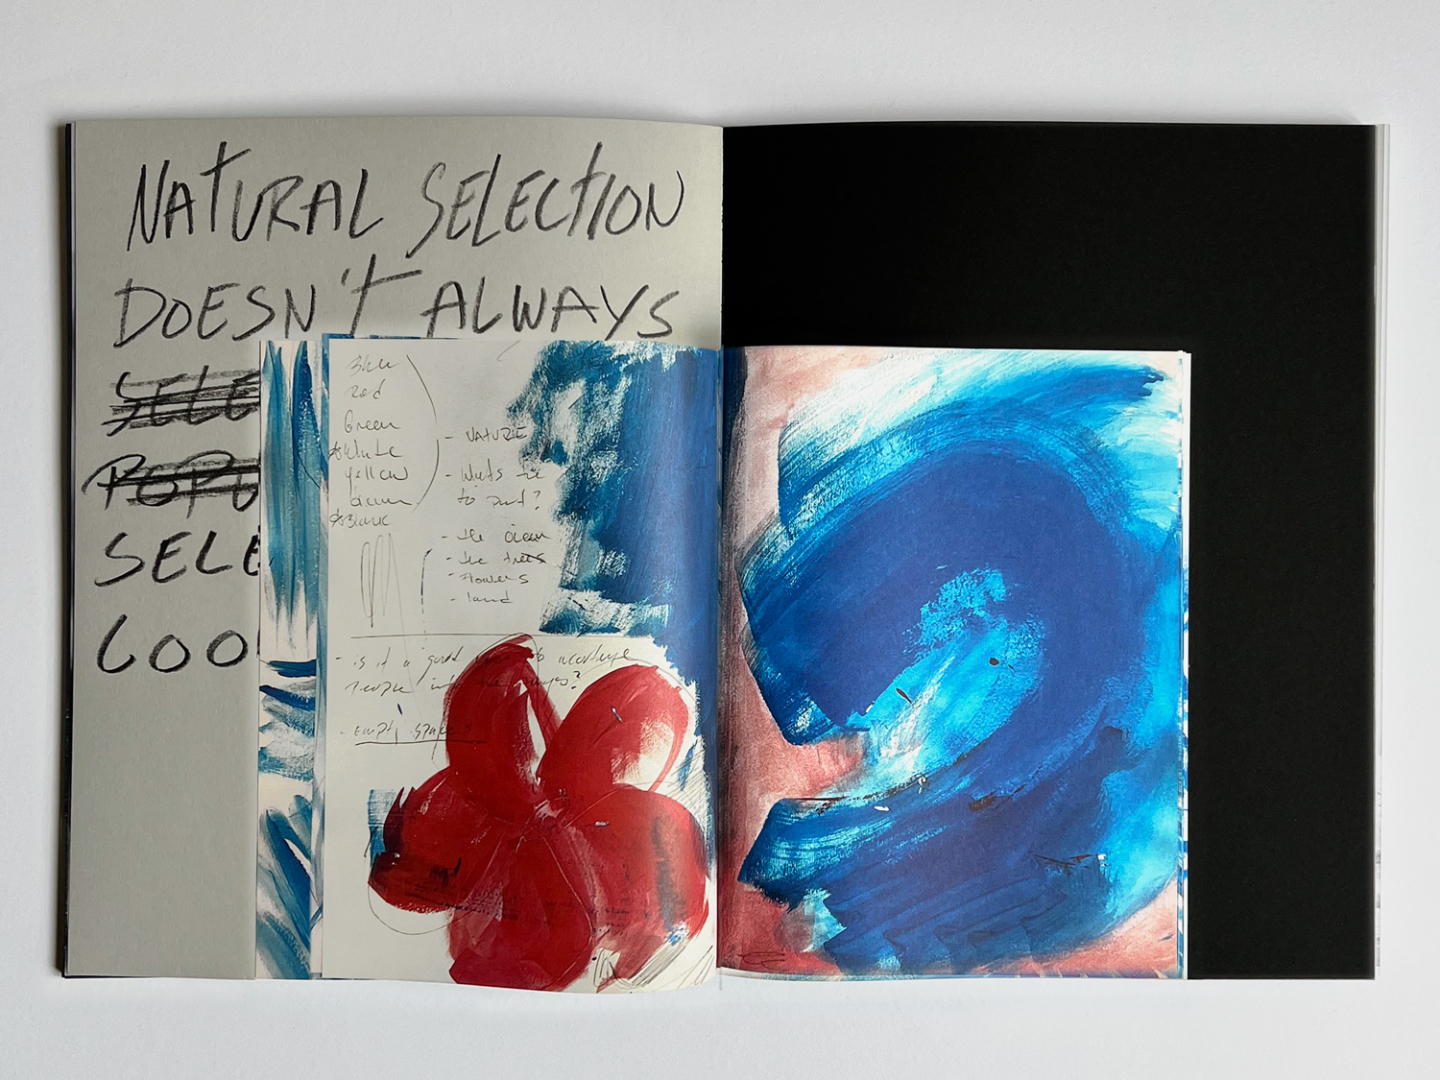 NATURAL SELECTION
DOESN'T ALWAYS
SELE
POPU
SELE
COO
Blue
Red
Green
White
yellow
Black
- NATURE
- Whats
to
- the ocean
- the trees
- Flowers
- land
- is it a good to
People
- Empty space?